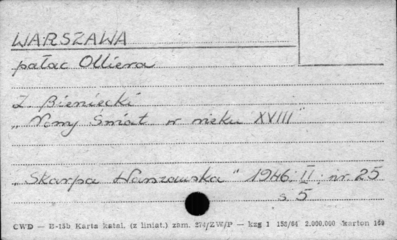 WARSZAWA
pałac Olliera
Z. Bieniecki
"Nowy Świat w wieku XVIII"
"Skarpa Warszawska" 1946. II, nr. 25
s. 5
CWD — B-15b Karta katal. (z liniat.) zam. — kzg 1 150/84 2.000.000 karton 160